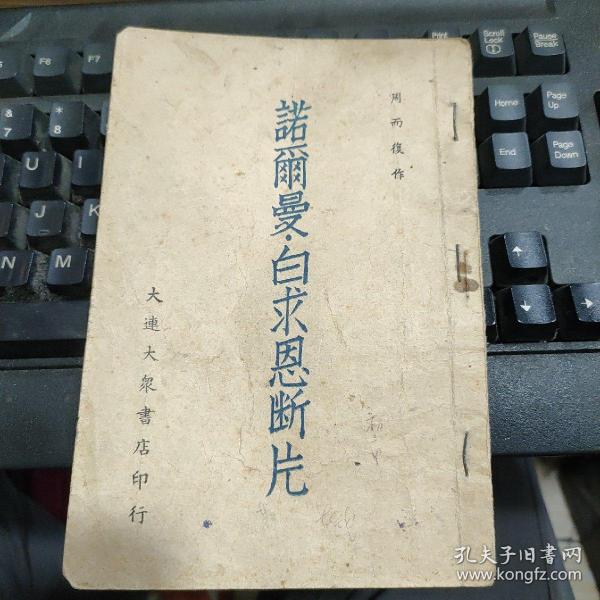 周而復作
諾爾曼·白求恩断片
大連大衆書店印行
Print
Scroll
Lock
Pause
Break
F5
F6
F7
&
7
*
8
Home
Page
Up
End
Page
Down
Y
U
I
J
K
N
M
孔夫子旧书网
www.kongfz.com